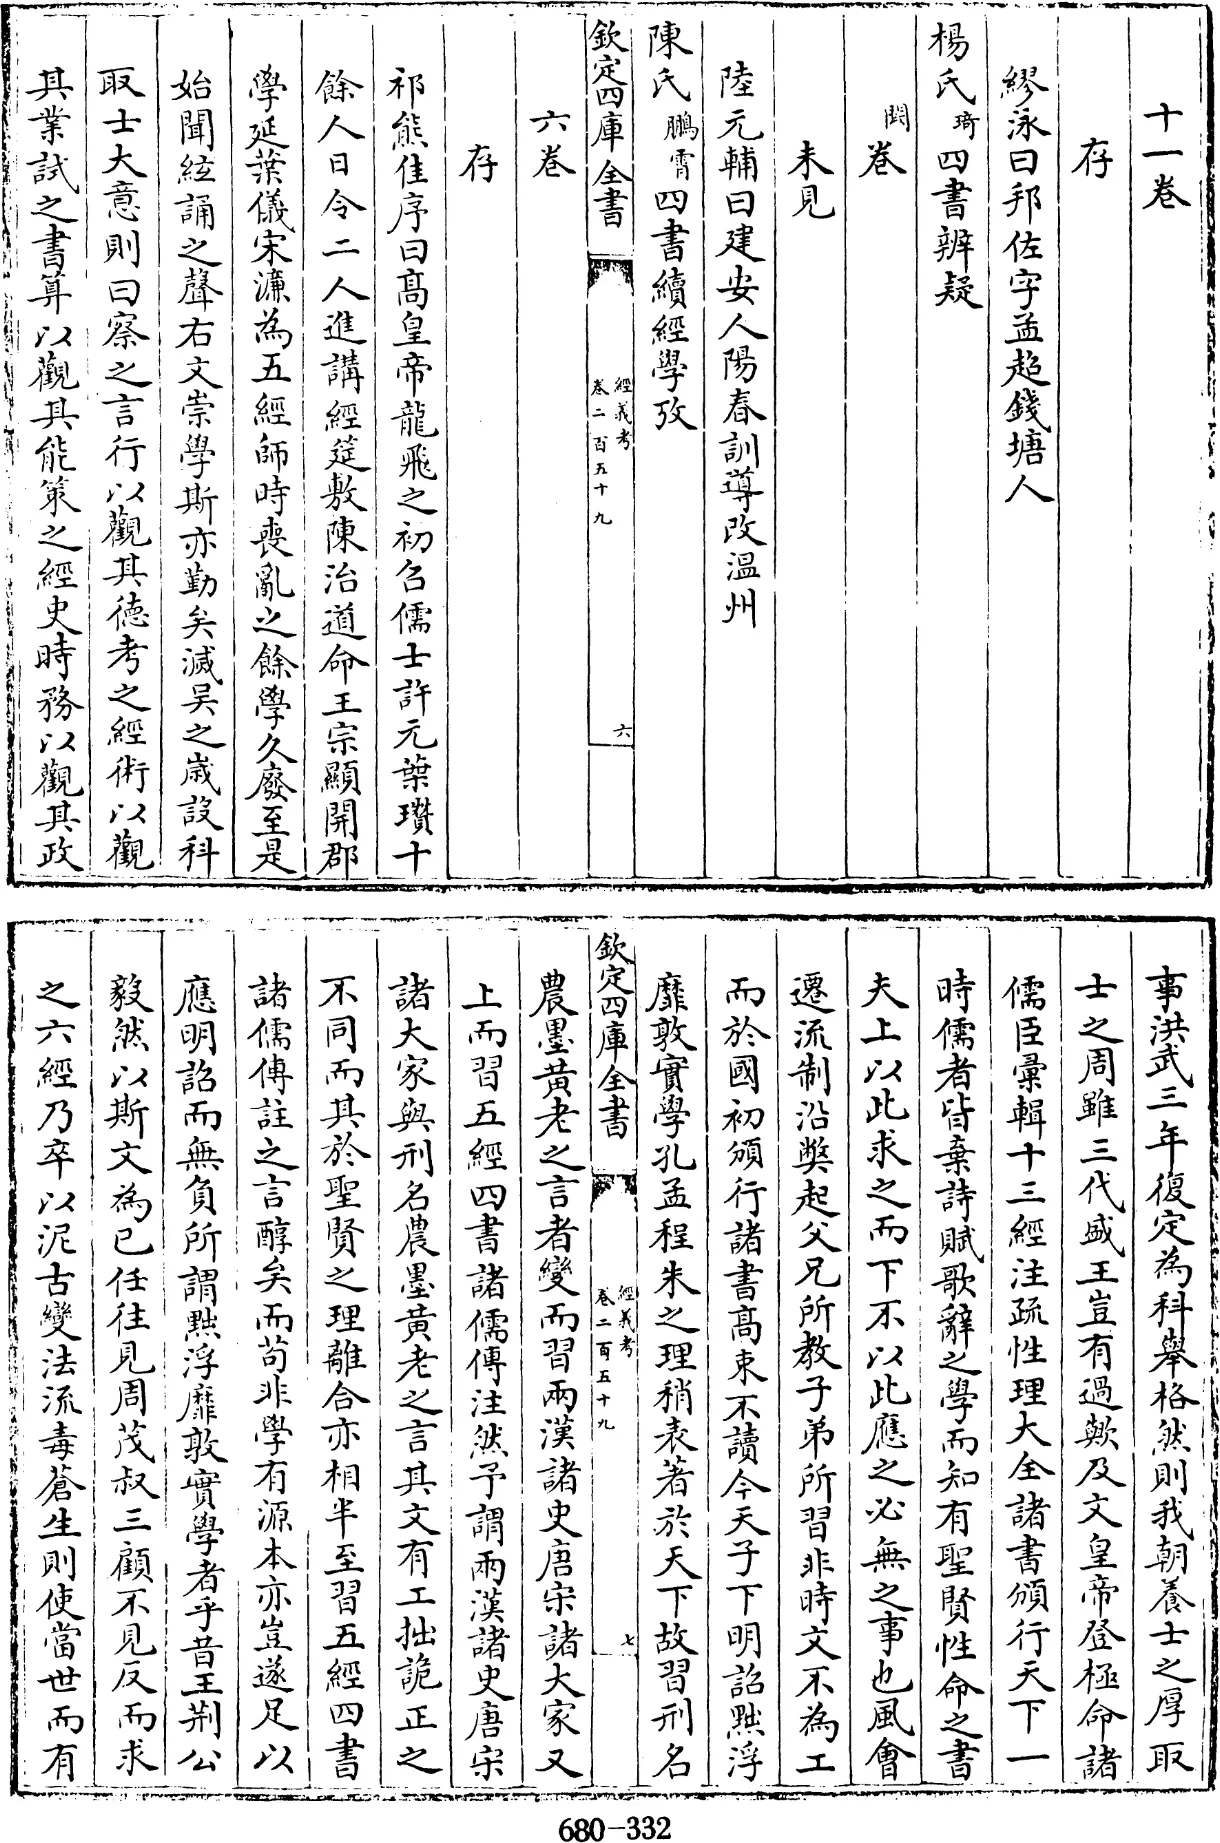 十一卷
存
繆泳曰邦佐字孟超錢塘人
楊氏琦四書辨疑
闕卷
未見
陸元輔曰建安人陽春訓導改温州
陳氏鵬霄四書續經學攷
欽定四庫全書
經義考
卷二百五十九
六
六卷
存
祁熊佳序曰髙皇帝龍飛之初召儒士許元葉瓚十
餘人日令二人進講經筵敷陳治道命王宗顯開郡
學延葉儀宋濂為五經師時喪亂之餘學久廢至是
始聞絃誦之聲右文崇學斯亦勤矣滅吴之歳設科
取士大意則曰察之言行以觀其德考之經術以觀
其業試之書算以觀其能策之經史時務以觀其政
事洪武三年復定為科舉格然則我朝養士之厚取
士之周雖三代盛王豈有過歟及文皇帝登極命諸
儒臣彙輯十三經注疏性理大全諸書頒行天下一
時儒者皆棄詩賦歌辭之學而知有聖賢性命之書
夫上以此求之而下不以此應之必無之事也風會
遷流制沿獘起父兄所教子弟所習非時文不為工
而於國初頒行諸書髙束不讀今天子下明詔黜浮
靡敦實學孔孟程朱之理稍表著於天下故習刑名
欽定四庫全書
經義考
卷二百五十九
七
農墨黄老之言者變而習兩漢諸史唐宋諸大家又
上而習五經四書諸儒傳注然予謂兩漢諸史唐宋
諸大家與刑名農墨黄老之言其文有工拙詭正之
不同而其於聖賢之理離合亦相半至習五經四書
諸儒傳註之言醇矣而茍非學有源本亦豈遂足以
應明詔而無負所謂黜浮靡敦實學者乎昔王荆公
毅然以斯文為已任往見周茂叔三顧不見反而求
之六經乃卒以泥古變法流毒蒼生則使當世而有
680-332